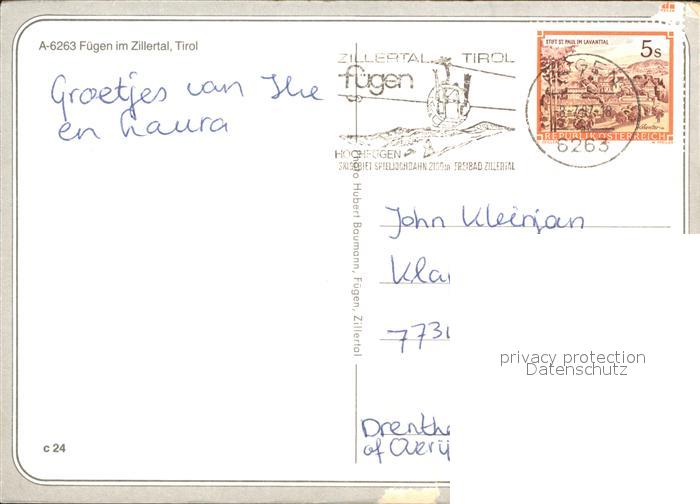 A-6263 Fügen im Zillertal, Tirol
Groetjes van Ilse
en Laura
ZILLERTAL TIROL
fügen
HOCHFÜGEN
SKIGEBIET SPIELJOCHBAHN 2100m FREIBAD ZILLERTAL
STIFT ST. PAUL IM LAVANTTAL
5s
REPUBLIK ÖSTERREICH
6263
Photo Hubert Baumann, Fügen, Zillertal
John Kleinjan
Kla
773
privacy protection
Datenschutz
Drenthe
of Overij
c 24